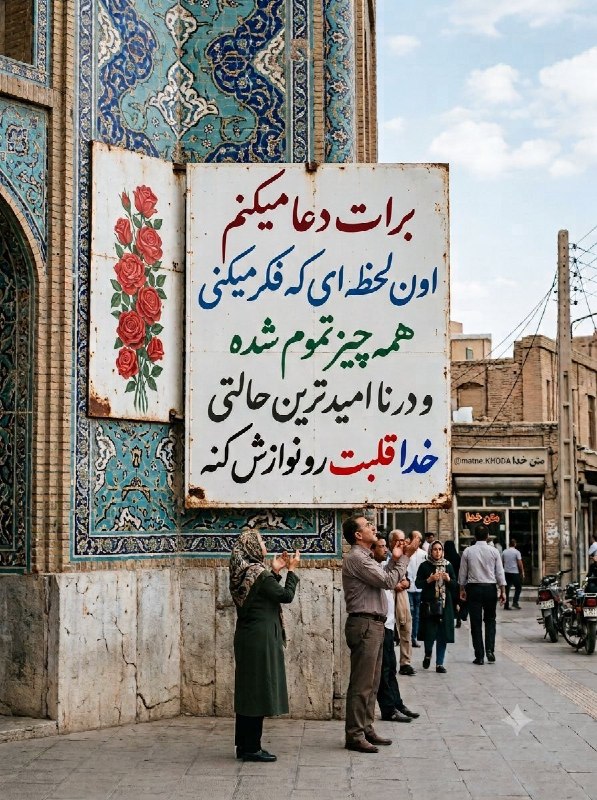 برات دعا میکنم
اون لحظه ای که فکر میکنی
همه چیز تموم شده
و در نا امید ترین حالتی
خدا قلبت رو نوازش کنه
@matne.KHODA متن خدا
متن خدا